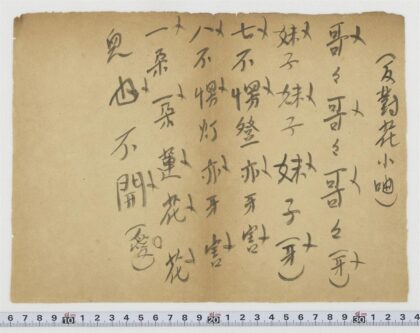 （反對花小
哥々哥々哥々（牙）
妹子妹子妹子（牙）
七不愣 亦牙害
八不愣灯亦牙害
一朵一朵蓮花花
兒也不開
6 7 8 9 10 1 2 3 4 5 6 7 8 9 20 1 2 3 4 5 6 7 8 9 30 1 2 3 4